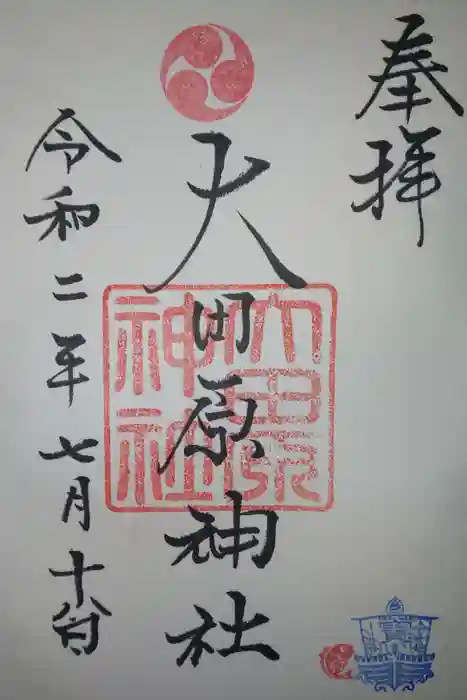 奉拝
大田原神社
大田原
神社
令和二年七月十八日